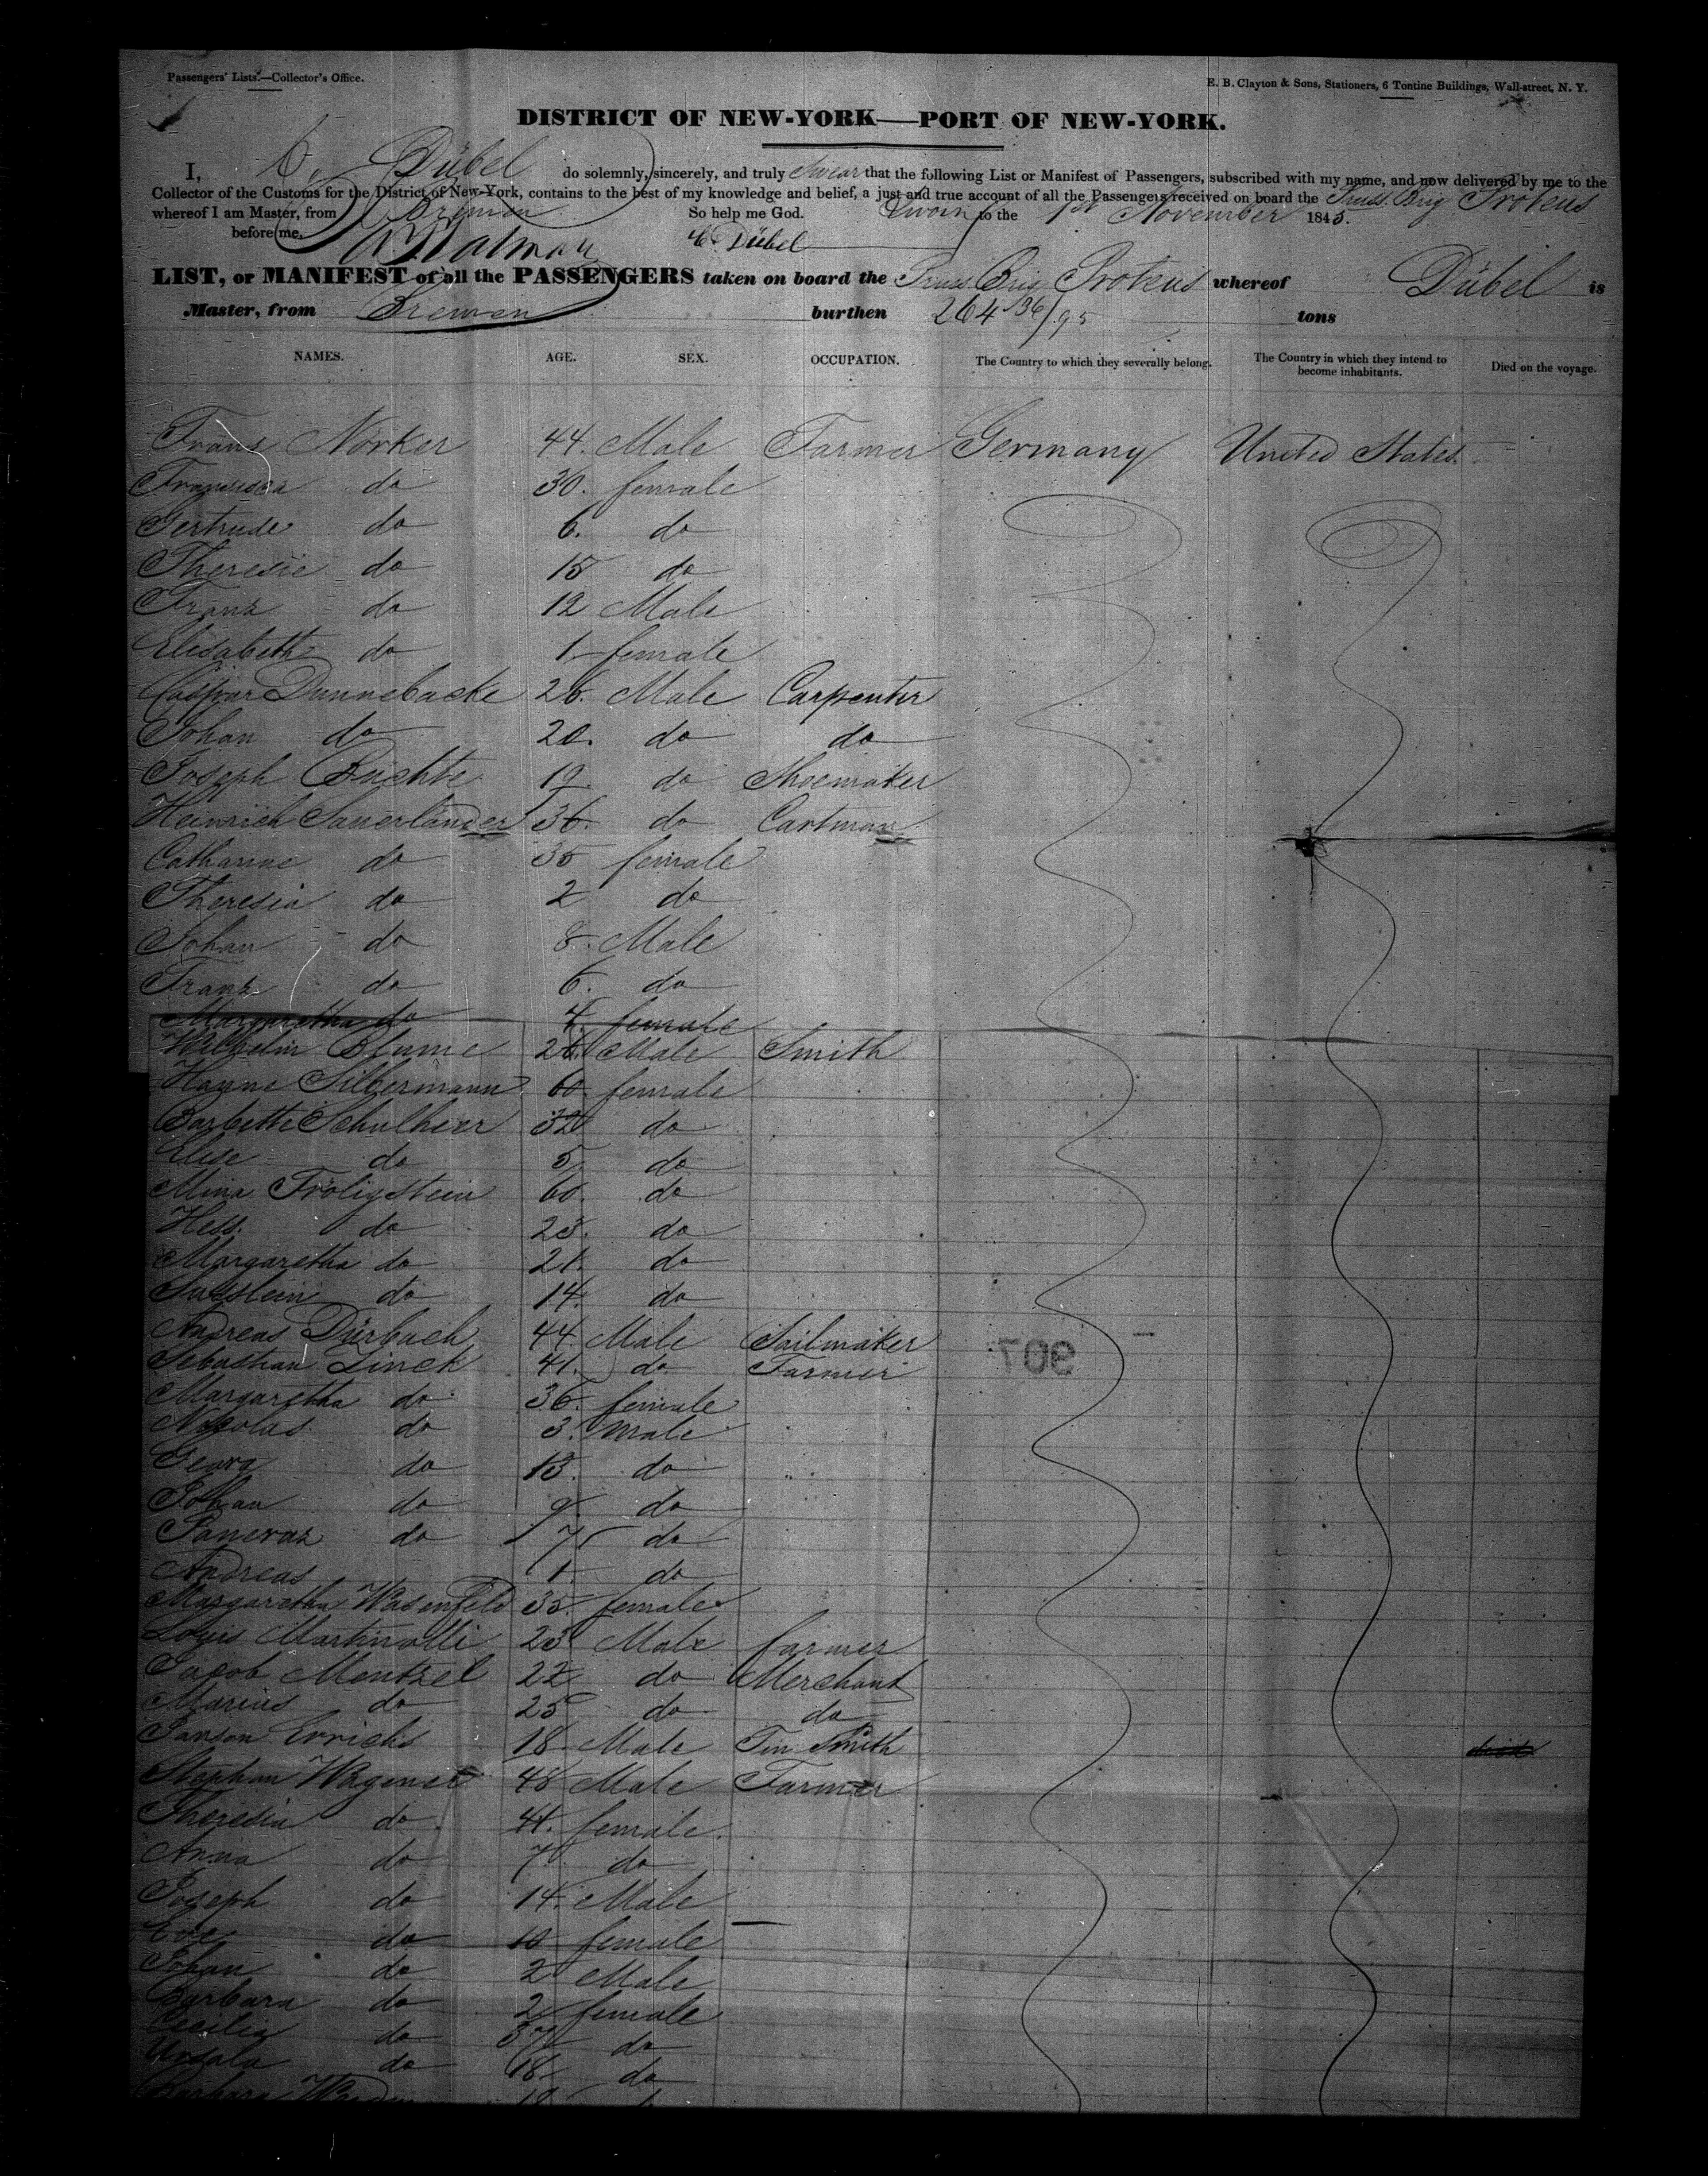 Passengers' Lists.—Collector's Office.
E. B. Clayton & Sons, Stationers, 6 Tontine Buildings, Wall-street, N. Y.
DISTRICT OF NEW-YORK—PORT OF NEW-YORK.
I, C. Dübel do solemnly, sincerely, and truly swear that the following List or Manifest of Passengers, subscribed with my name, and now delivered by me to the
Collector of the Customs for the District of New-York, contains to the best of my knowledge and belief, a just and true account of all the Passengers received on board the Pruss. Brig Proteus
whereof I am Master, from Bremen So help me God. Sworn to the 1st November 1845.
before me, C. Dübel
LIST, or MANIFEST of all the PASSENGERS taken on board the Pruss Brig Proteus whereof Dübel is
Master, from Bremen burthen 264 36/95 tons
NAMES. AGE. SEX. OCCUPATION. The Country to which they severally belong. The Country in which they intend to become inhabitants. Died on the voyage.
Frans Nörker 44. Male Farmer Germany United States.
Francisca do 30. female
Gertrude do 6. do
Theresie do 15 do
Franz do 12 Male
Elisabeth do 1 female
Caspar Dunnebacke 26. Male Carpenter
Johan do 20. do do
Joseph Buchte 19 do Shoemaker
Heinrich Sauerländer 36. do Cartman
Catharine do 35 female
Theresia do 2 do
Johan do 8. Male
Franz do 6. do
Margaretha do 4. female
Wilhelm Blume 26. Male Smith
Hanne Silbermann 60 female
Barbette Schulheer 32 do
Elise do 5 do
Mina Froligstein 60. do
Hess. do 23. do
Margaretha do 21. do
do 14. do
Andreas Dürbach 44. Male Sailmaker
Sebastian Linck 41. do Farmer
Margaretha do 36. female
Nicolas do 3. male
Georg do 13. do
Johan do 9. do
Pancraz do 7 do
Andreas 1. do
Margaretha Wasenfeld 35. female
Louis Martinelli 23 Male farmer
Jacob Mentzel 22 do Merchant
Marius do 25 do do
Janson Errichs 18 Male Tin Smith
Stephan Wagner 48 Male Farmer
Theresia do 44. female.
Anna do 7 do
Joseph do 14. Male
Eve do 10 female
Johan do 2 Male
Barbara do 2 female
Cecilia do 37 do
Ursala do 18. do
Barbara 18
907